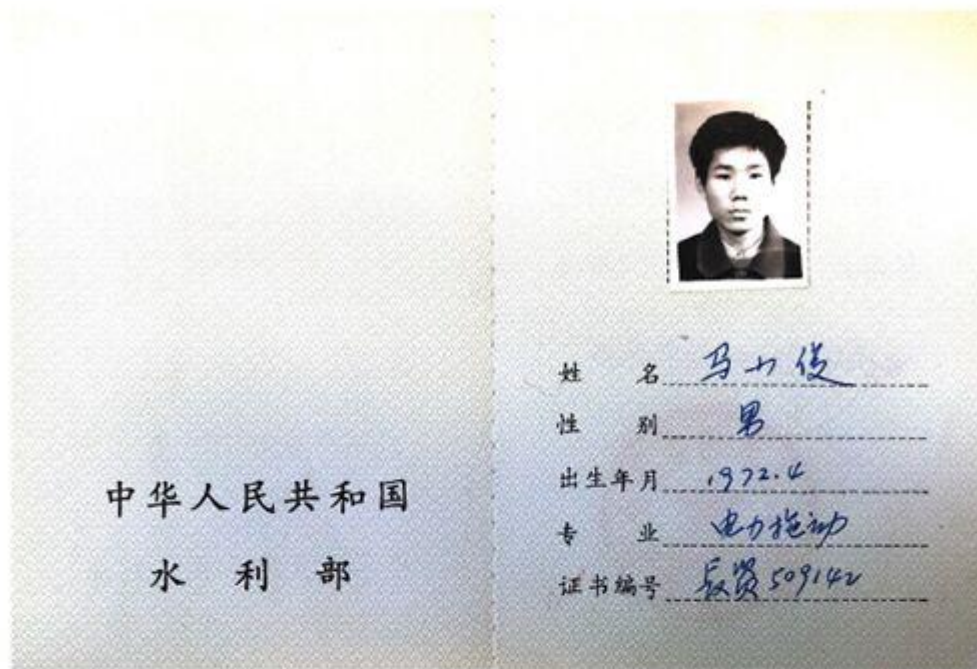 中华人民共和国
水利部
姓名 马小俊
性别 男
出生年月 1972.4
专业 电力拖动
证书编号 长资509142